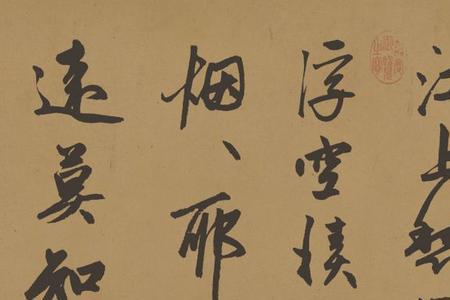 江上愁
浮空積
烟、耶
遠莫知